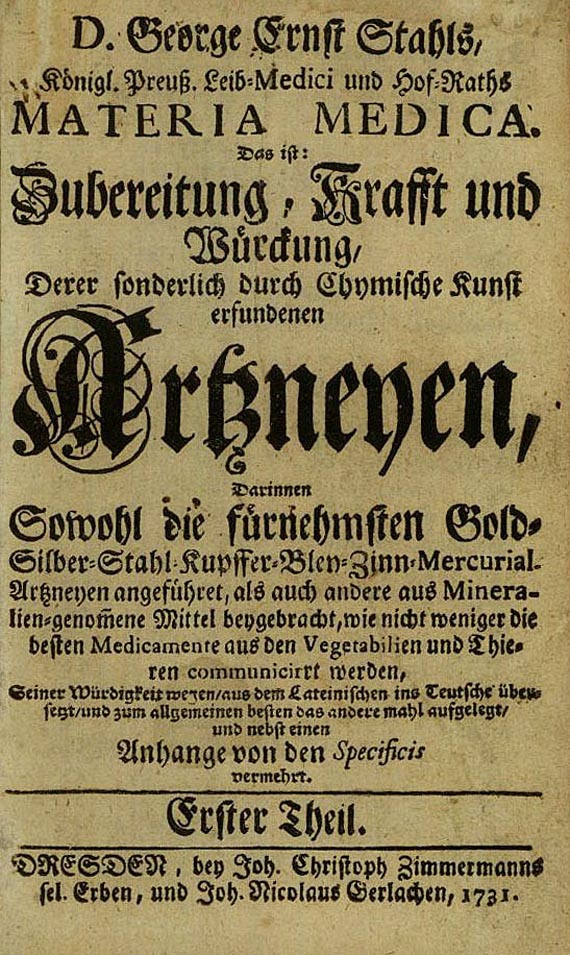 D. George Ernst Stahls,
Königl. Preuß. Leib-Medici und Hof-Raths
MATERIA MEDICA.
Das ist:
Zubereitung, Krafft und
Würckung,
Derer sonderlich durch Chymische Kunst
erfundenen
Artzneyen,
Darinnen
Sowohl die fürnehmsten Gold-
Silber-Stahl-Kupffer-Bley-Zinn-Mercurial-
Artzneyen angeführet, als auch andere aus Minera-
lien-genom̃ene Mittel beygebracht, wie nicht weniger die
besten Medicamente aus den Vegetabilien und Thie-
ren communicirt werden,
Seiner Würdigkeit wegen/aus dem Lateinischen ins Teutsche über-
setzt/und zum allgemeinen besten das andere mahl aufgelegt/
und nebst einen
Anhange von den Specificis
vermehrt.
Erster Theil.
DRESDEN, bey Joh. Christoph Zimmermanns
sel. Erben, und Joh. Nicolaus Gerlachen, 1731.